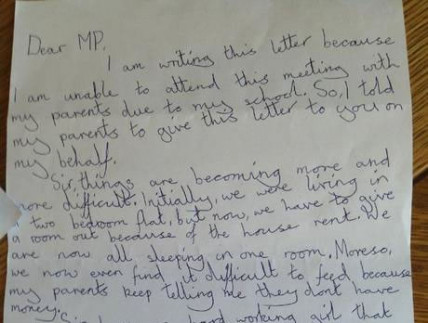 Dear MP,
I am writing this letter because
I am unable to attend this meeting with
my parents due to my school. So, I told
my parents to give this letter to you on
my behalf.
Sir, things are becoming more and
more difficult. Initially, we were living in
a two bedroom flat, but now, we have to give
a room out because of the house rent. We
are now all sleeping in one room. Moreso,
we now even find it difficult to feed because
my parents keep telling me they dont have
money.
hard working girl that